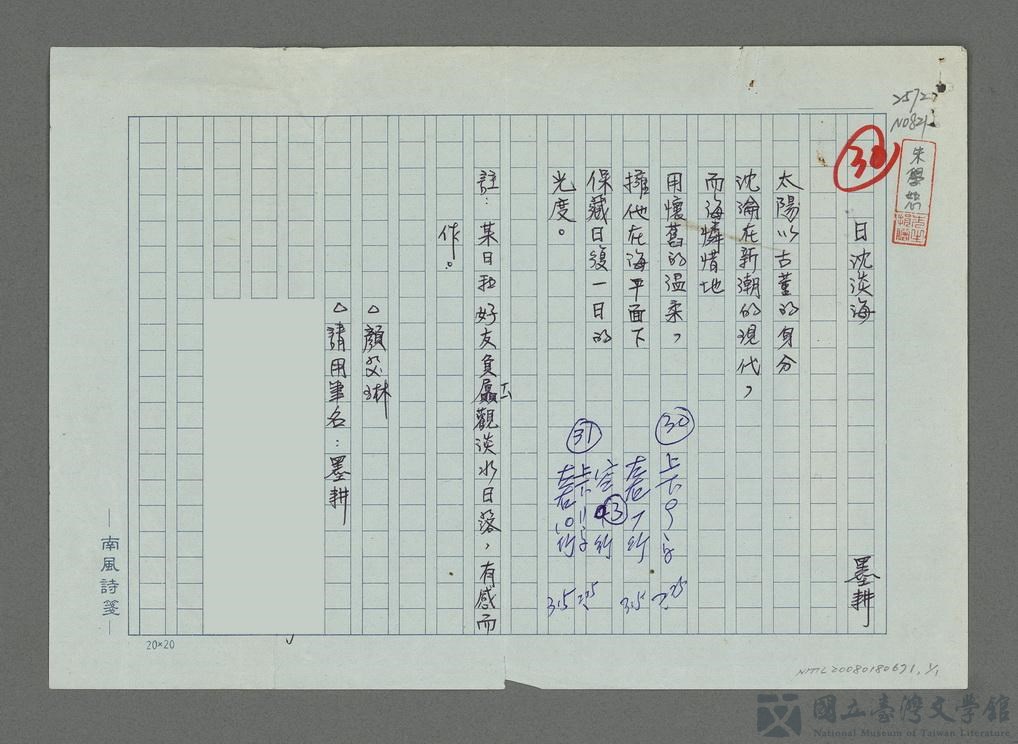 日沈淡海
墨耕
太陽以古董的身分
沈淪在新潮的現代，
而海憐惜地
用懷舊的溫柔，
擁他在海平面下
保藏日復一日的
光度。
註：某日和好友負屭觀淡水日落，有感而
作。
△顏艾琳
△請用筆名：墨耕
30
30
上下9字
左右7行
3.5
31
空43行
上下11字
左右10行
3.5
朱學恕
南風詩箋
20×20
NMTL20080180691, 1/1
國立臺灣文學館
National Museum of Taiwan Literature